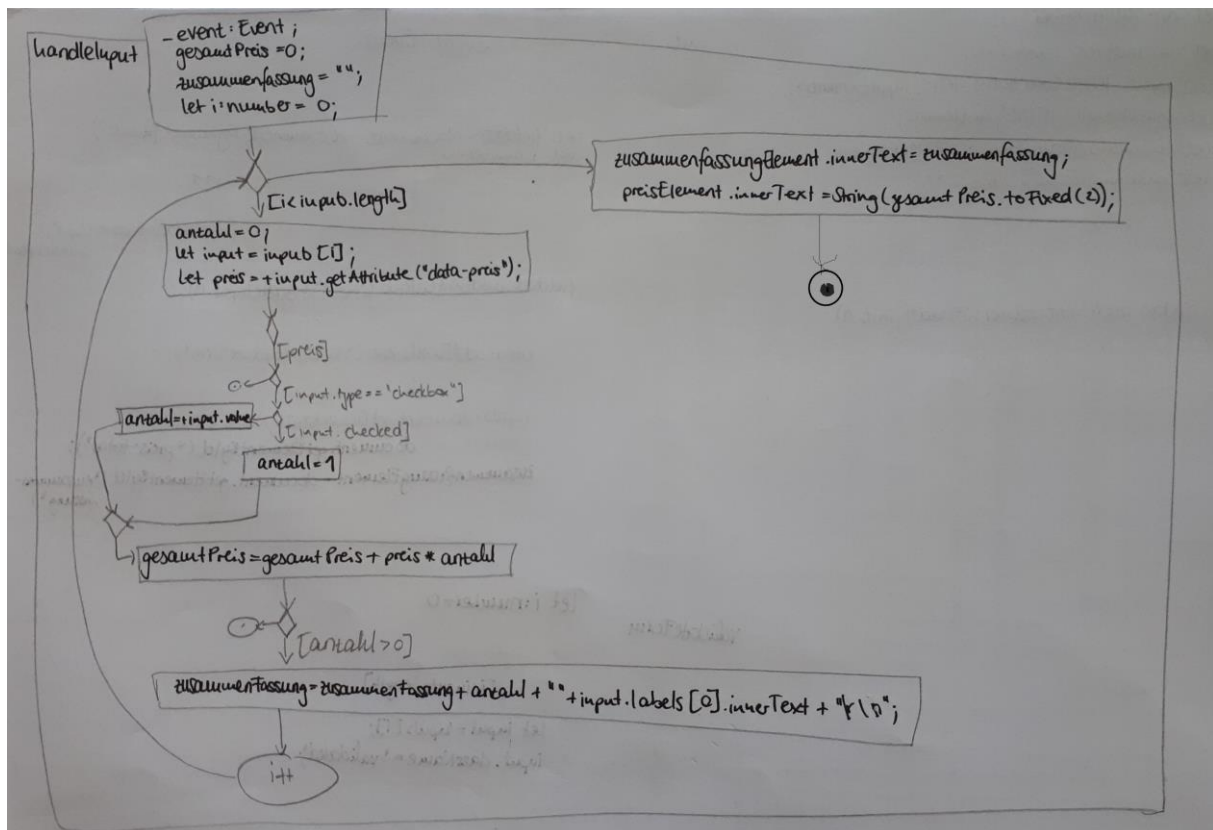 handleInput
_event: Event;
gesamtPreis =0;
zusammenfassung = "";
let i:number = 0;
zusammenfassungElement.innerText = zusammenfassung;
preisElement.innerText = String(gesamtPreis.toFixed(2));
[i<inputs.length]
antahl=0;
let input = inputs[i];
let preis = +input.getAttribute("data-preis");
[preis]
[input.type == "checkbox"]
antahl=+input.value
[input.checked]
antahl=1
gesamtPreis=gesamtPreis + preis * antahl
[antahl>0]
zusammenfassung=zusammenfassung + antahl + " " + input.labels[0].innerText + "\r\n";
i++